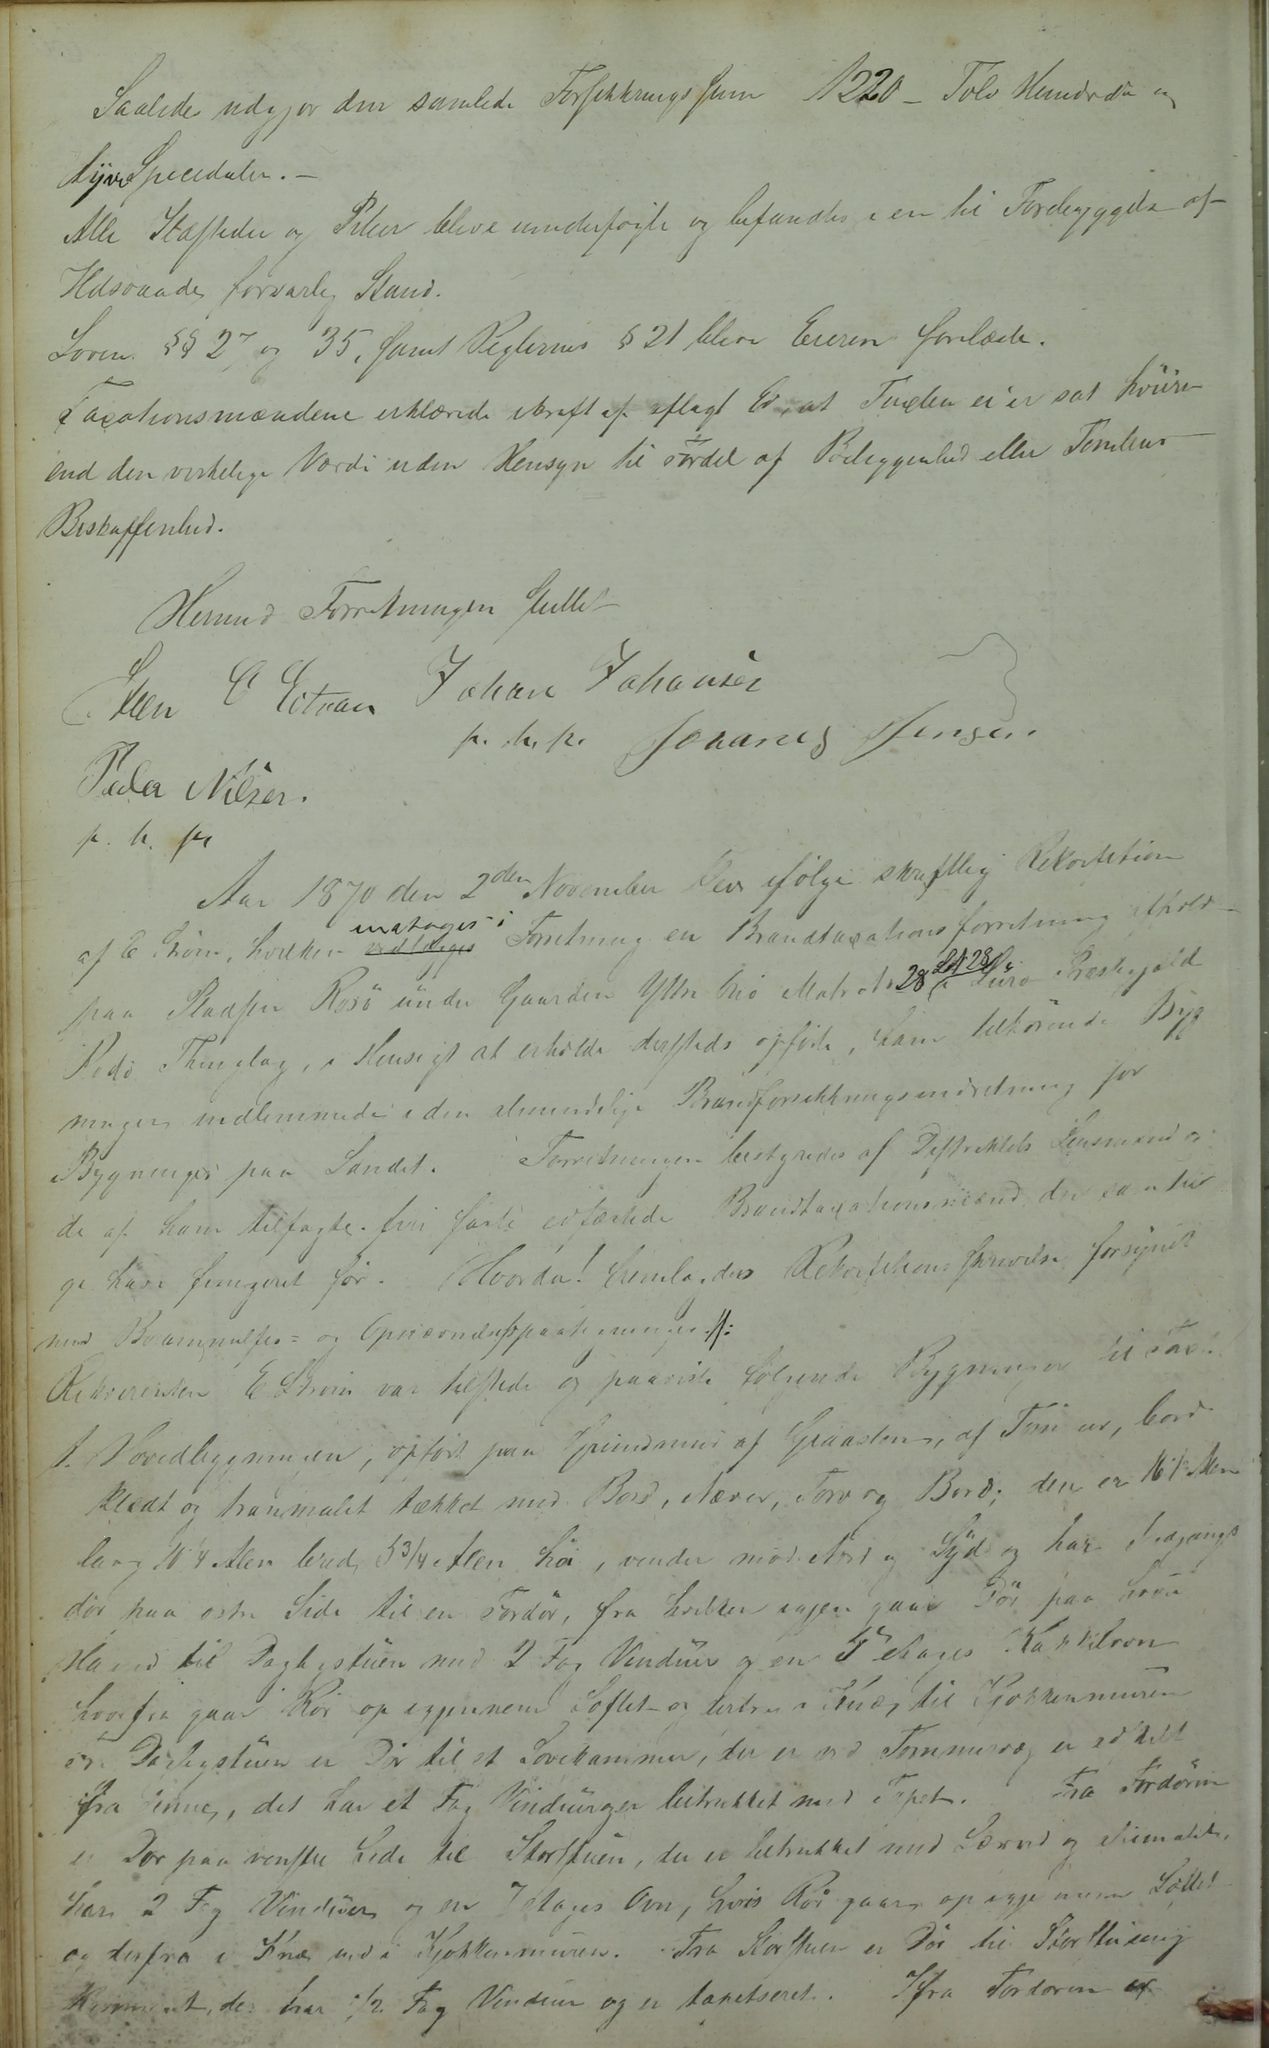 Saaledes udgjør den samlede Forsikkringssum 1220 – Tolv Hundrede og
tyve Speciedaler. –
Alle Ildsteder og Piber bleve undersøgte og befandtes i en til Forebyggelse af
Ildsvaade forsvarlig Stand.
Lovens §§ 27 og 35, samt Reglernes § 21 bleve Eieren forelæste.
Taxationsmændene erklærede i kraft af aflagt Ed, at Taxten ei er sat høiere
end den virkelige Værdi uden Hensyn til Fordel af Beliggenhed eller Tomtens
Beskaffenhed.
Hermed Forretningen sluttet
Sten C Eitran Johan Johansen
p. h. p. Joannes Jensen
Peder Nilsen.
p. h. p.
Aar 1870 den 2den November blev ifølge skriftlig Rekvisition
af E Strøm, hvilken vedlægges modtages i Forretning en Brandtaxationsforretning afholdt
paa Pladsen Rosø under Gaarden Yttre Matr 28 Lb 28 i Lurø Præstegjeld
Rødø Thinglag, i Hensigt at erholde dersteds opførte, ham tilhørende Byg
ninger indlemmede i den almindelige Brandforsikkringsindretning for
Bygninger paa Landet. Forretningen bestyredes af Distriktets Lensmand og
de af ham tilsagte faste edfæstede Brandtaxationsmænd der samtli
ge have fungeret før. Hvorda! fremlagdes Rekvisitions skrivelse forsynet
med Berammelses= og paategninger //:
Rekvirenten E Strøm var tilstede og paaviste følgende Bygninger til Taxt
1. Hovedbygningen, opført paa Grundmur af Graasten, af Tømmer, bord
klædt og tranmalet tækket med Bord, Næver, Torv og Bord; den er 16 1/2 Alen
lang 10 1/4 Alen bred, 5 3/4 Alen høi, vender mod Nord og Syd og har Indgangs
dør paa østre Side til en Fordør, fra hvilken igjen gaar Dør paa høire
Haand til Dagligstuen med 2 Fag Vinduer og en Etages Kakkelovn
hvorfra gaar Rør op igjennem Loftet og derfra i Knæ, til Kjøkkenmuren
fra Dagligstuen er Dør til et Sovekammer, der er ved Tømmervæg er adskilt
fra denne, det har et Fag Vinduer betrukket med Tapet. Fra Fordøren
er Dør paa venstre Side til Storstuen, der er betrukket med Lærred og limmalet,
har 2 Fag Vinduer og en Etages Ovn, hvis Rør gaar op igjennem Loftet
og derfra i Knæ ind i Kjøkkenmuren. Fra Storstuen er Dør til Storstue
Kammeret, der har 1/2 Fag Vinduer og er tapetseret. Ifra Fordøren er